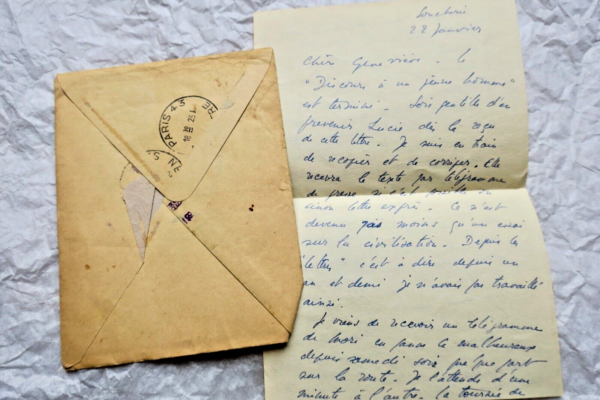 22 Janvier
Chère Geneviève - le
"Discours à un jeune homme"
est terminé. Sois gentille d'en
prévenir Lucie dès le reçu
de cette lettre. Je suis en train
de recopier et de corriger. Elle
recevra le texte par télégramme
de presse si c'est
sinon lettre exprès. Ce n'est
devenu pas moins qu'un essai
sur la civilisation. Depuis la
"lettre" c'est à dire depuis un
an et demi je n'avais pas travaillé
ainsi.
Je viens de recevoir un télégramme
de Mori en panne le malheureux
depuis samedi soir quelque part
sur la route. Je l'attends d'une
minute à l'autre. La tournée de
PARIS 43
18H 25
RE